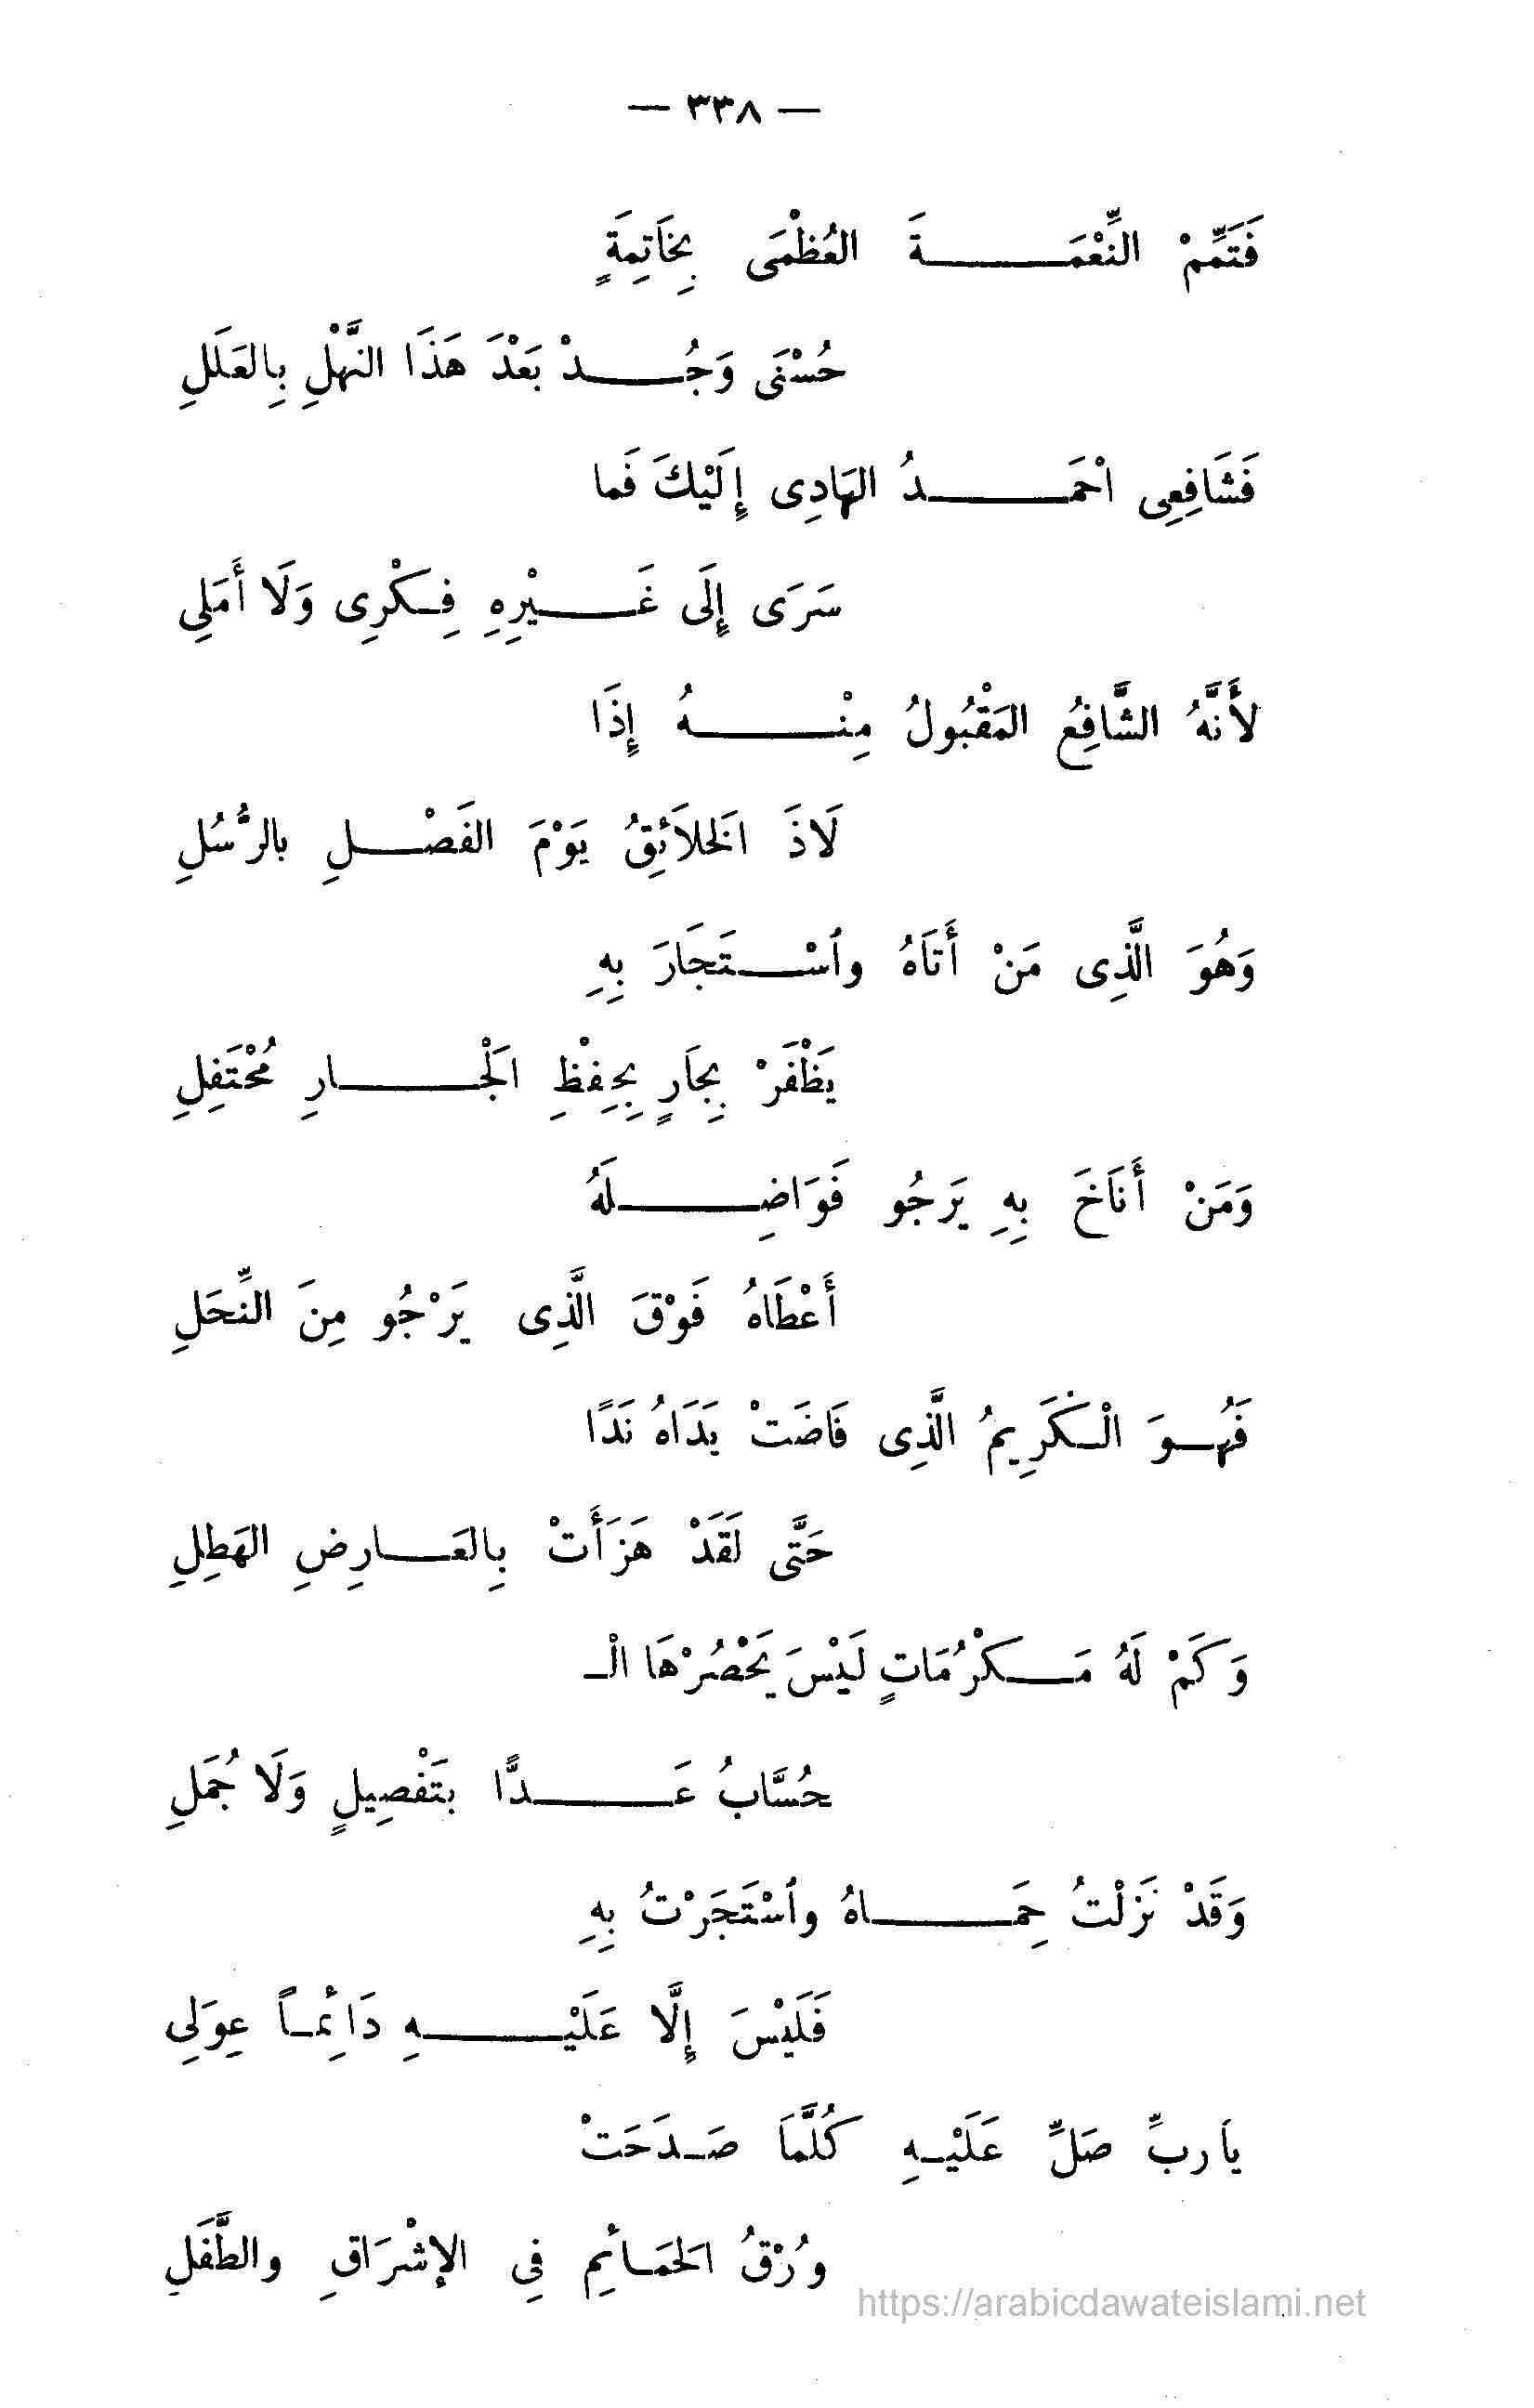 — ٣٣٨ —
فَتَمِّمْ النِّعْمَـةَ العُظْمَى بِخَاتِمَةٍ
حُسْنَى وَجُـدْ بَعْدَ هَذَا النَّهْلِ بِالعَلَلِ
فَشَافِعِى احْمَـدُ الهَادِى إِلَيْكَ فَما
سَرَى إِلَى غَـيْرِهِ فِـكْرِى وَلَا أَمَلِى
لأَنَّهُ الشَّافِعُ المَقْبُولُ مِنْـهُ إِذَا
لَاذَ الَخلاَئِقُ يَوْمَ الفَصْـلِ بالرُّسُلِ
وَهُوَ الَّذِى مَنْ أَتَاهُ وٱسْـتَجَارَ بِهِ
يَظْفَرْ بِجَارٍ بِحِفْظِ الَجْـارِ مُحْتَفِلِ
وَمَنْ أَنَاخَ بِهِ يَرَجُو فَوَاضِـلَهُ
أَعْطَاهُ فَوْقَ الَّذِى يَرْجُو مِنَ النِّحَلِ
فَهُـوَ الْـكَرِيمُ الَّذِى فَاضَتْ يَدَاهُ نَدًا
حَتَّى لَقَدْ هَزَأَتْ بِالعَـارِضِ الهَطِلِ
وَكَمْ لَهُ مَـكْرُمَاتٍ لَيْسَ يَحْصُرْهَا الْـ
حُسَّابُ عَـدًّا بتَفْصِيلٍ وَلَا جُمَلِ
وَقَدْ نَزلْتُ حِمَـاهُ وٱسْتَجَرْتُ بِهِ
فَلَيْسَ إِلَّا عَلَيْـهِ دَائِمـاً عِوَلِى
يَاربِّ صَلِّ عَلَيْـهِ كُلَّمَا صَـدَحَتْ
وُرْقُ الَحمَـائِمِ فِى الإشْرَاقِ والطَّفَلِ
https://arabicdawateislami.net